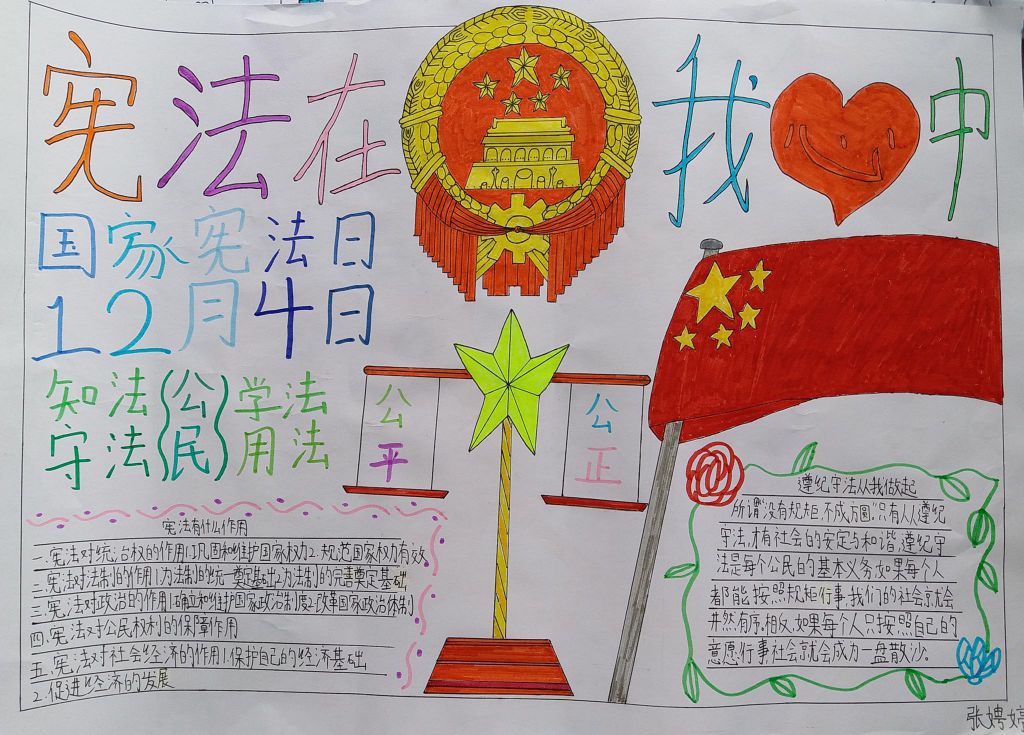 宪法在我中
国家宪法日
12月4日
知法(公学法
守法民)用法
公平
公正
宪法有什么作用
一.宪法对统治权的作用1.巩固和维护国家权力2.规范国家权力有效
二.宪法对法制的作用1.为法制的统一奠定基础2.为法制的完善奠定基础
三.宪法对政治的作用1.确立和维护国家政治制度2.改革国家政治体制
四.宪法对公民权利的保障作用
五.宪法对社会经济的作用1.保护自己的经济基础
2.促进经济的发展
遵纪守法从我做起
所谓没有规矩,不成方圆,只有人人遵纪
守法,才有社会的安定与和谐.遵纪守
法是每个公民的基本义务,如果每个人
都能按照规矩行事,我们的社会就会
井然有序.相反,如果每个人只按照自己的
意愿行事社会就会成为一盘散沙。
张娉婷